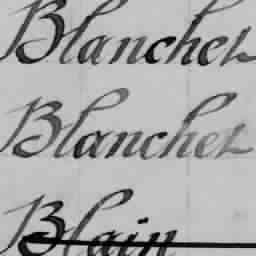 Blanchet
Blanchet
Blain